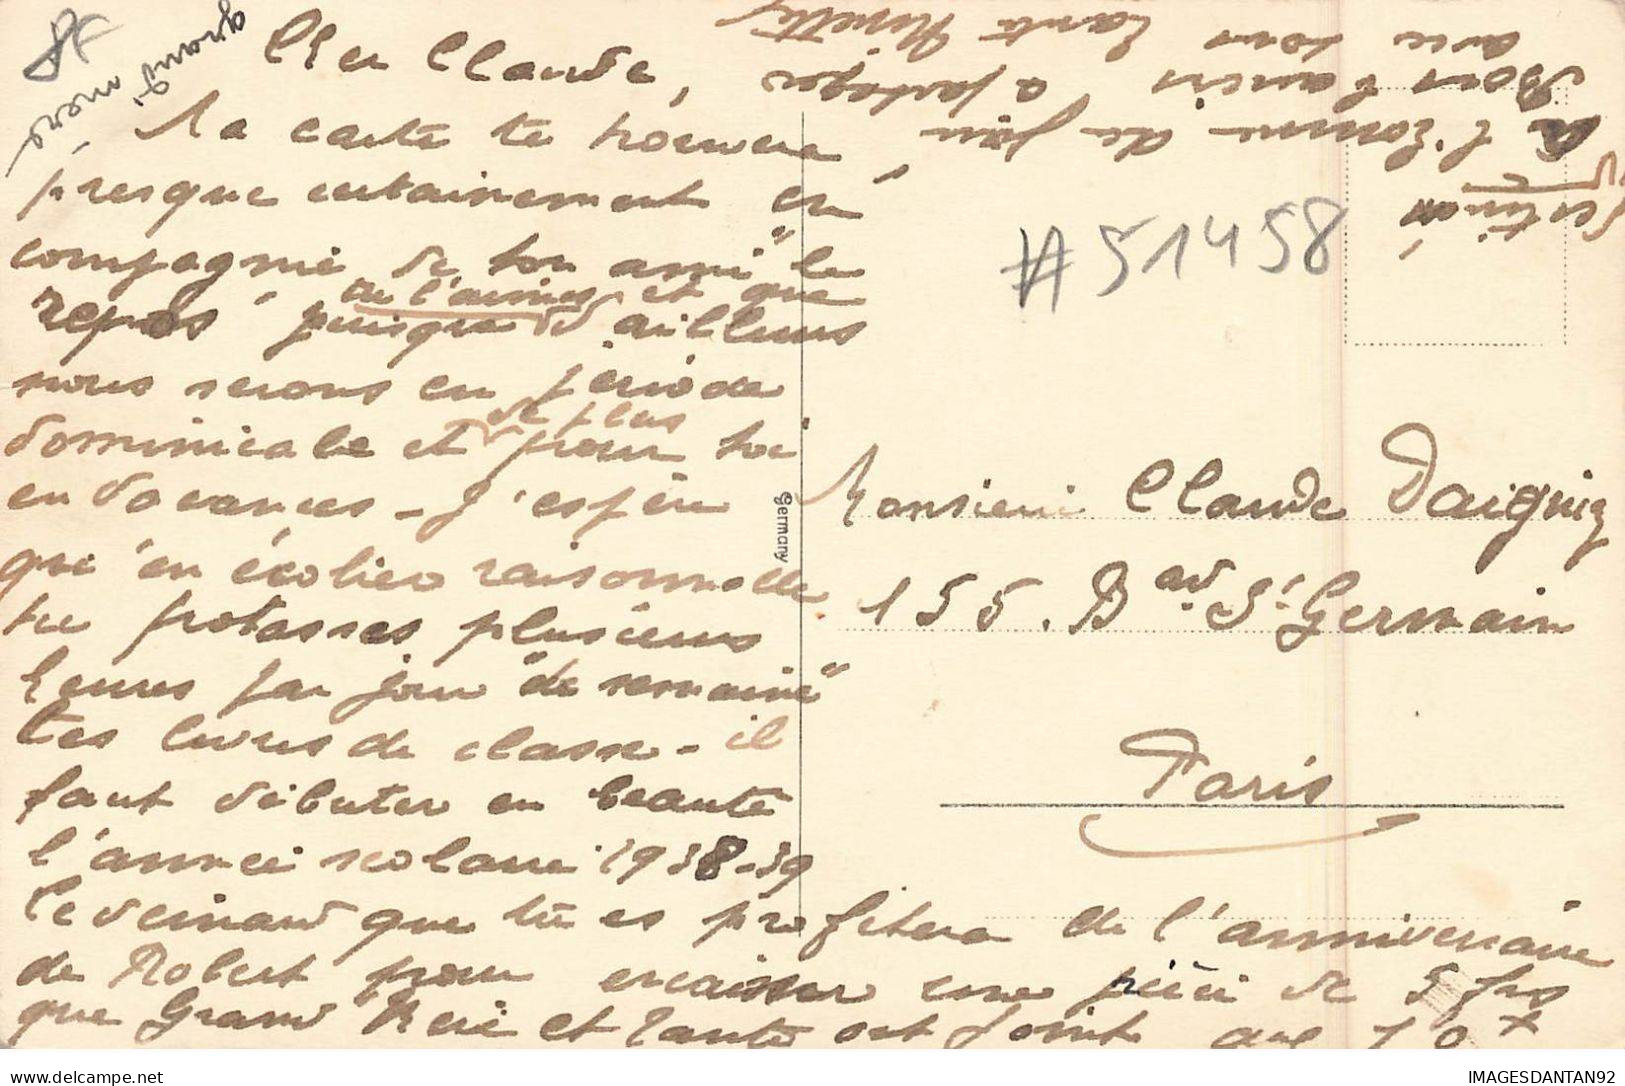 Cher Claude,
Ma carte te trouvera
presque certainement "en
compagnie de ton ami" le
repos puisque d'ailleurs
ou l'aimes et que
nous serons en période
dominicale et de plus pour toi
en vacances - J'espère
qu'en écolier raisonnable
tu potasses plusieurs
heures par jour "de semaine"
tes livres de classe - il
faut débuter en beauté
l'année scolaire 1938-39
le veinard que tu es profitera de l'anniversaire
de Robert pour encaisser une pièce de 5 frs
que Grand Mère et Tante ont joint aux 10 x
grand' mère
destinés
à l'homme du jour
Bons baisers à partager
avec tous Tante Ninette
#51458
Germany
Monsieur Claude Daignez
155. Bard St Germain
Paris
IMAGESDANTAN92